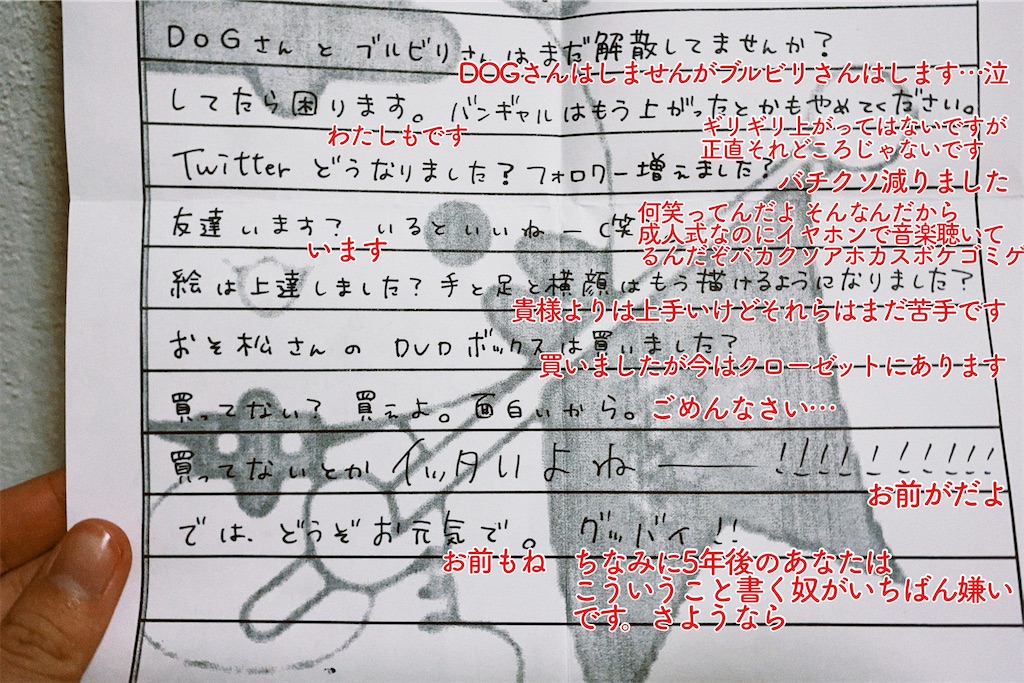 DOGさんとブルビリさんはまだ解散してませんか?
DOGさんはしませんがブルビリさんはします…泣
してたら困ります。バンギャルはもう上がったとかもやめてください。
わたしもです
ギリギリ上がってはないですが
正直それどころじゃないです
Twitterどうなりました?フォロワー増えました?
バチクソ減りました
友達います?いるといいねー(笑
います
何笑ってんだよ そんなんだから
成人式なのにイヤホンで音楽聴いて
るんだぞバカクソアホカスボケゴミゲ
絵は上達しました?手と足と横顔はもう描けるようになりました?
貴様よりは上手いけどそれらはまだ苦手です
おそ松さんのDVDボックスは買いました?
買いましたが今はクローゼットにあります
買ってない?買えよ。面白いから。
ごめんなさい…
買ってないとかイッタいよね――!!!!!!!!!
お前がだよ
では、どうぞお元気で。グッバイ!!
お前もね
ちなみに5年後のあなたは
こういうこと書く奴がいちばん嫌い
です。さようなら